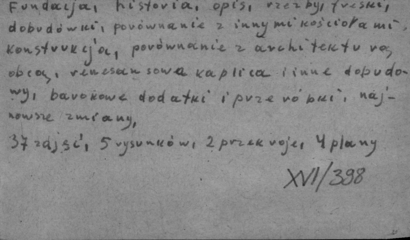 Fundacja, historia, opis, rzeźby, freski,
dobudówki, porównanie z innymi kościołami,
konstrukcja, porównanie z architekturą
obcą, renesansowa kaplica i inne dobudo-
wy, barokowe dodatki i przeróbki, naj-
nowsze zmiany,
37 zdjęć, 5 rysunków, 2 przekroje, 4 plany
XVI/398